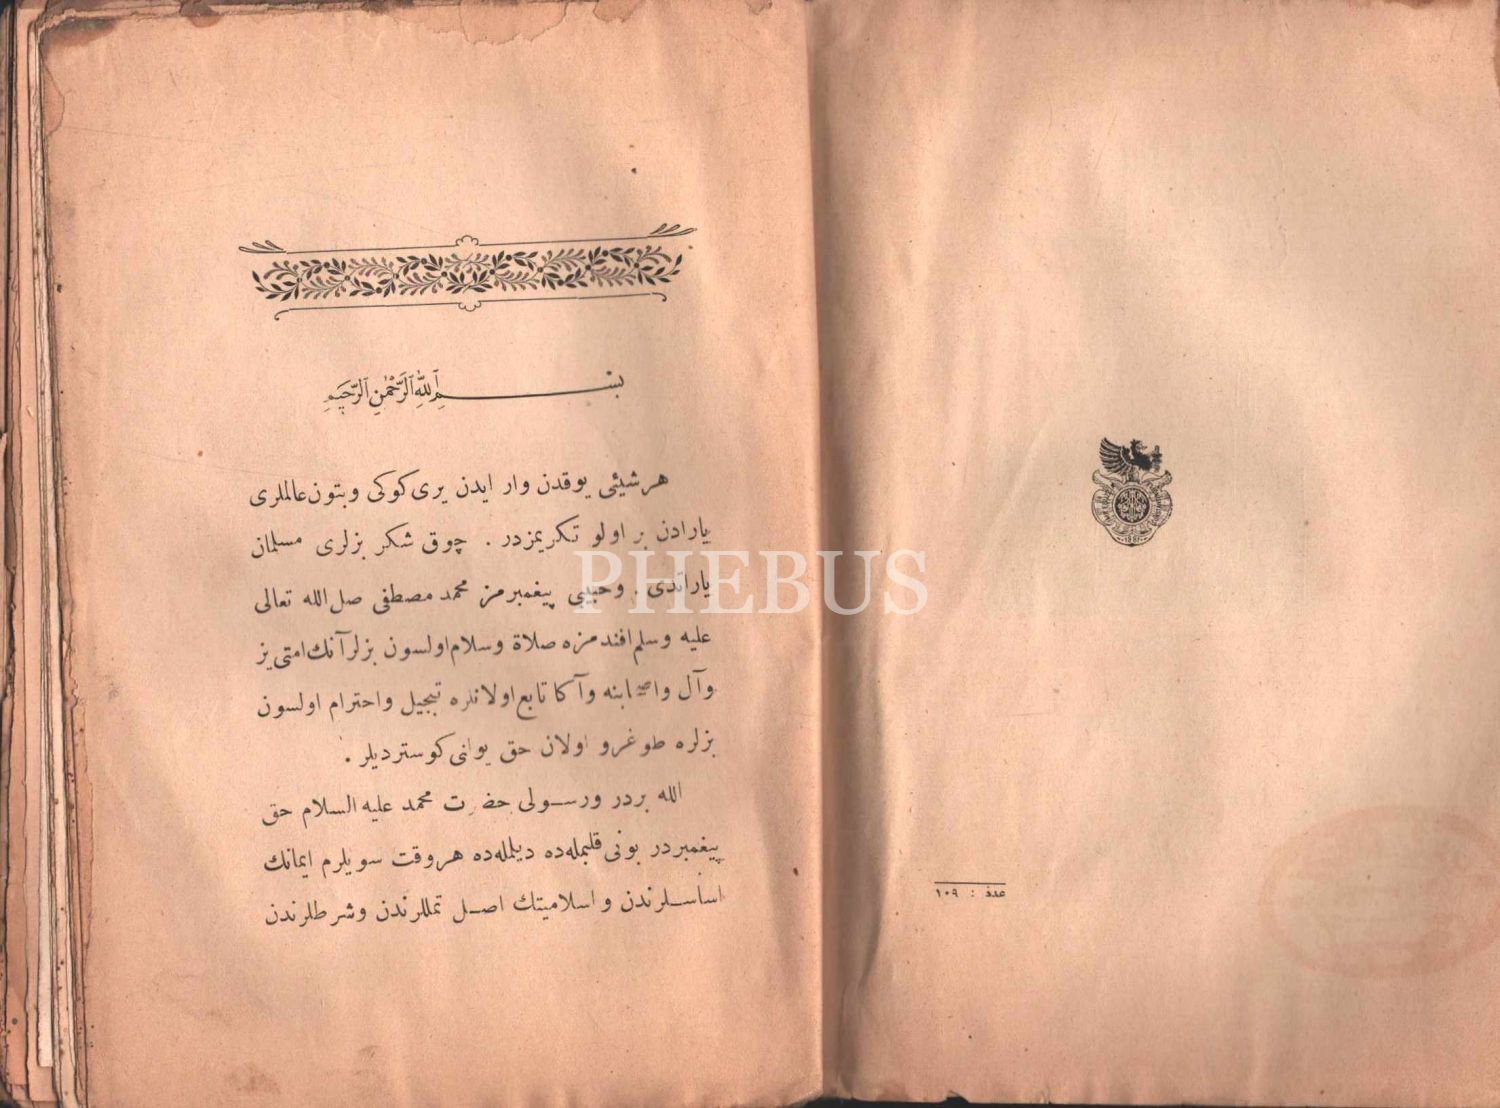 عدد : ١٠٩
بسم الله الرحمن الرحيم
هر شيئى يوقدن وار ايدن يرى كوكى وبتون عالملرى
يارادن بر اولو تكريمزدر . چوق شكر بزلرى مسلمان
ياراتدى . وحبيبى پيغمبرمز محمد مصطفى صل الله تعالى
عليه وسلم افندمزه صلاة وسلام اولسون بزلر آنك امتى يز
وآل واصحابنه وآكا تابع اولانلره تبجيل واحترام اولسون
بزلره طوغرو اولان حق يولنى كوسترديلر .
الله بردر ورسولى حضرت محمد عليه السلام حق
پيغمبردر بونى قلبمله ده ديلمله ده هروقت سويلرم ايمانك
اساسلرندن واسلاميتك اصل تمللرندن وشرطلرندن
PHEBUS